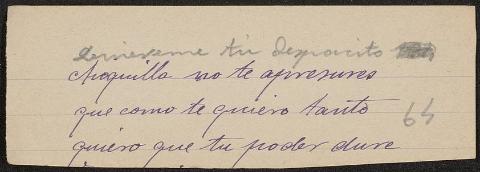 Quiereme tú despacito
Chiquilla no te apresures
que como te quiero tanto
64
quiero que tu poder dure